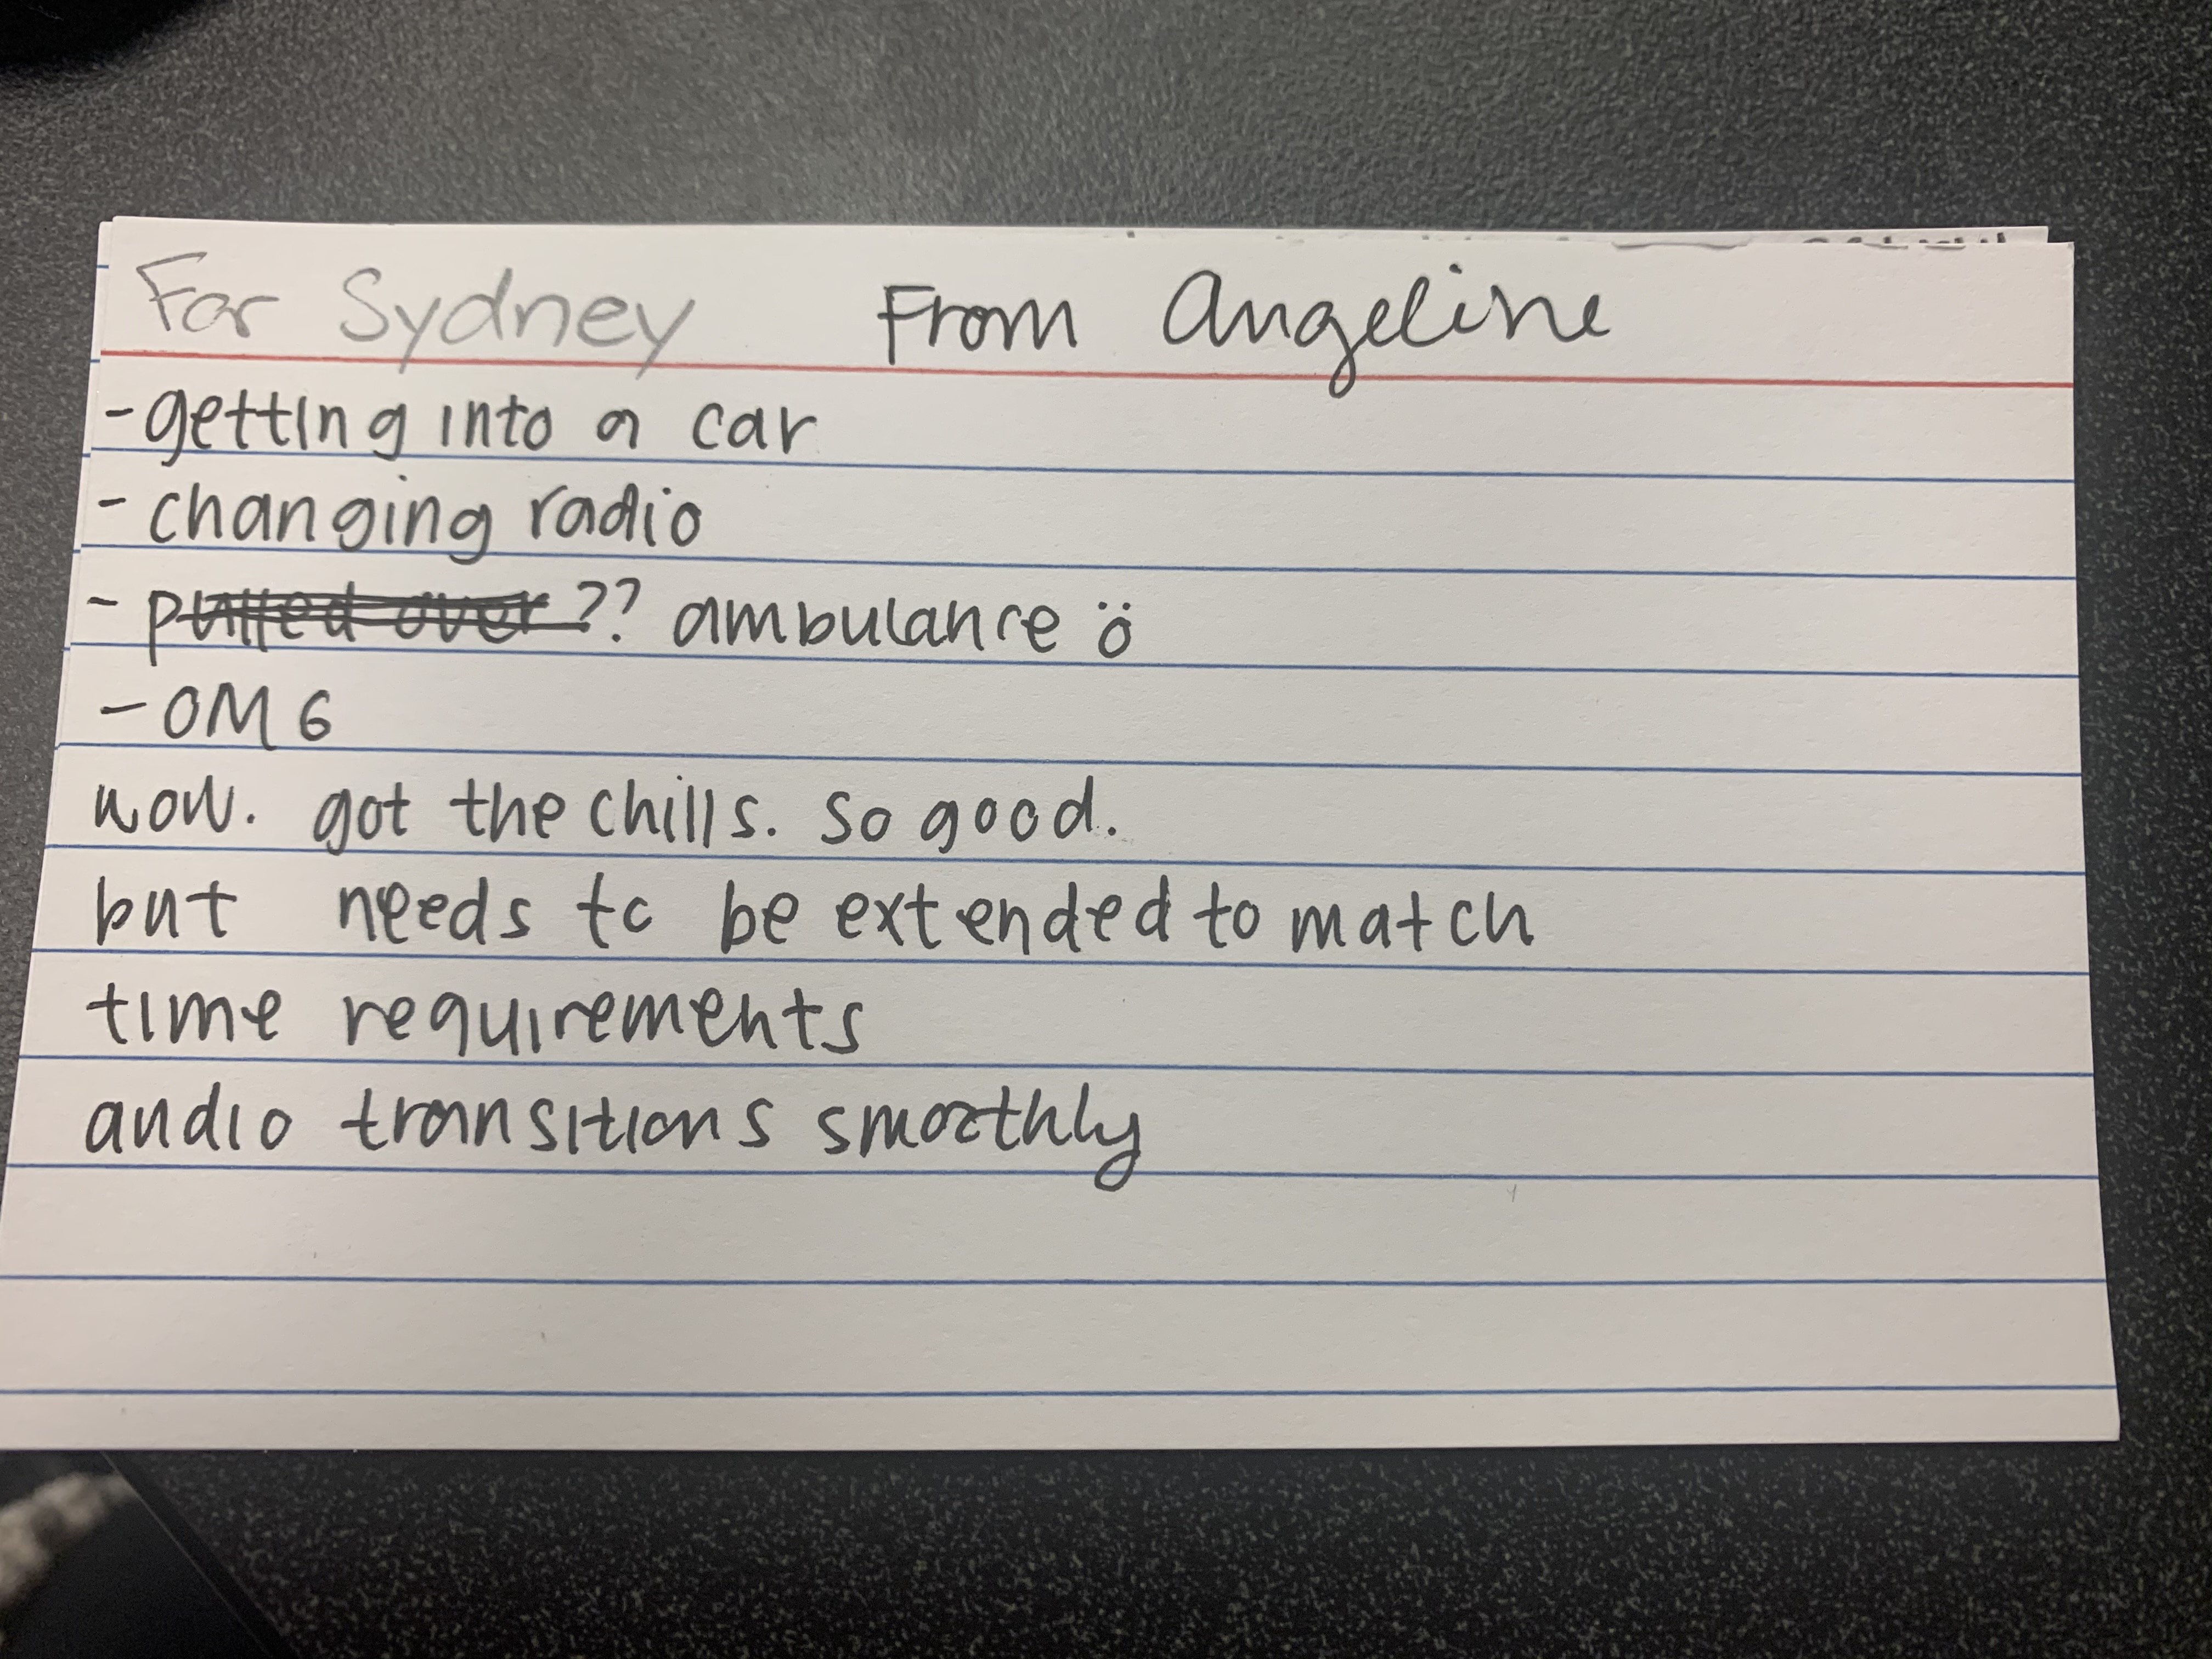 For Sydney From Angeline
- getting into a car
- changing radio
- pulled over ?? ambulance ö
- OMG
wow. got the chills. so good.
but needs to be extended to match
time requirements
audio transitions smoothly